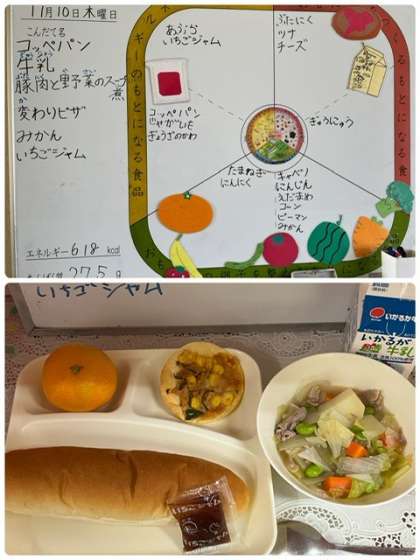 11月10日木曜日
こんだて名
コッペパン
牛乳
豚肉と野菜のスープ煮
変わりピザ
みかん
いちごジャム
エネルギー618 kcal
27.5 g
あぶら
いちごジャム
ぶたにく
ツナ
チーズ
コッペパン
じゃがいも
ぎょうざのかわ
ぎゅうにゅう
たまねぎ
にんにく
キャベツ
にんじん
えだまめ
コーン
ピーマン
みかん
ギーのもとになる食品
つくるもとになる食
いちごジャム
いかるが
いかるが
牛乳
いちごジャム